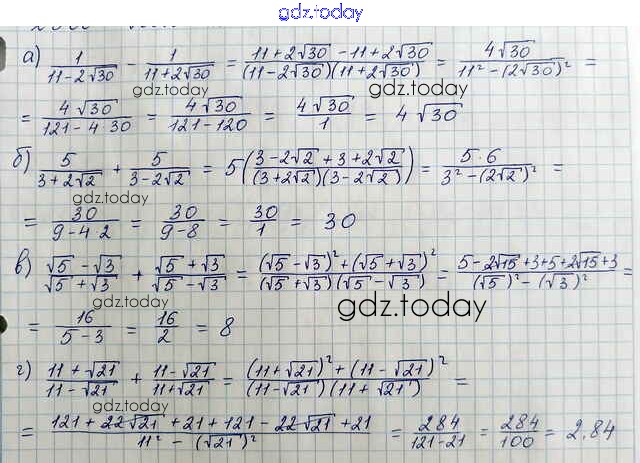 gdz.today
а) 1/(11-2√30) - 1/(11+2√30) = (11+2√30-11+2√30)/((11-2√30)(11+2√30)) = 4√30/(11²-(2√30)²) =
gdz.today gdz.today
= 4√30/(121-4·30) = 4√30/(121-120) = 4√30/1 = 4√30
б) 5/(3+2√2) + 5/(3-2√2) = 5((3-2√2+3+2√2)/((3+2√2)(3-2√2))) = 5·6/(3²-(2√2)²) =
gdz.today
= 30/(9-4·2) = 30/(9-8) = 30/1 = 30
в) (√5-√3)/(√5+√3) + (√5+√3)/(√5-√3) = ((√5-√3)²+(√5+√3)²)/((√5+√3)(√5-√3)) = (5-2√15+3+5+2√15+3)/((√5)²-(√3)²) =
gdz.today gdz.today
= 16/(5-3) = 16/2 = 8
г) (11+√21)/(11-√21) + (11-√21)/(11+√21) = ((11+√21)²+(11-√21)²)/((11-√21)(11+√21)) =
gdz.today
= (121+22√21+21+121-22√21+21)/(11²-(√21)²) = 284/(121-21) = 284/100 = 2.84